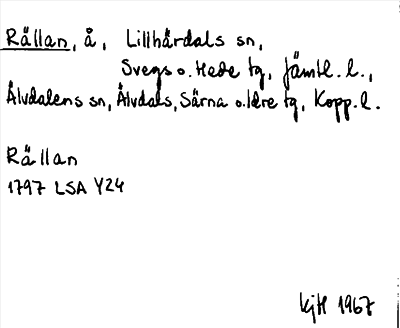 Rällan, å, Lillhärdals sn,
Svegs o. Hede tg, Jämtl. l.,
Älvdalens sn, Älvdals, Särna o. Idre tg, Kopp. l.
Rällan
1797 LSA Y24
KjH 1967